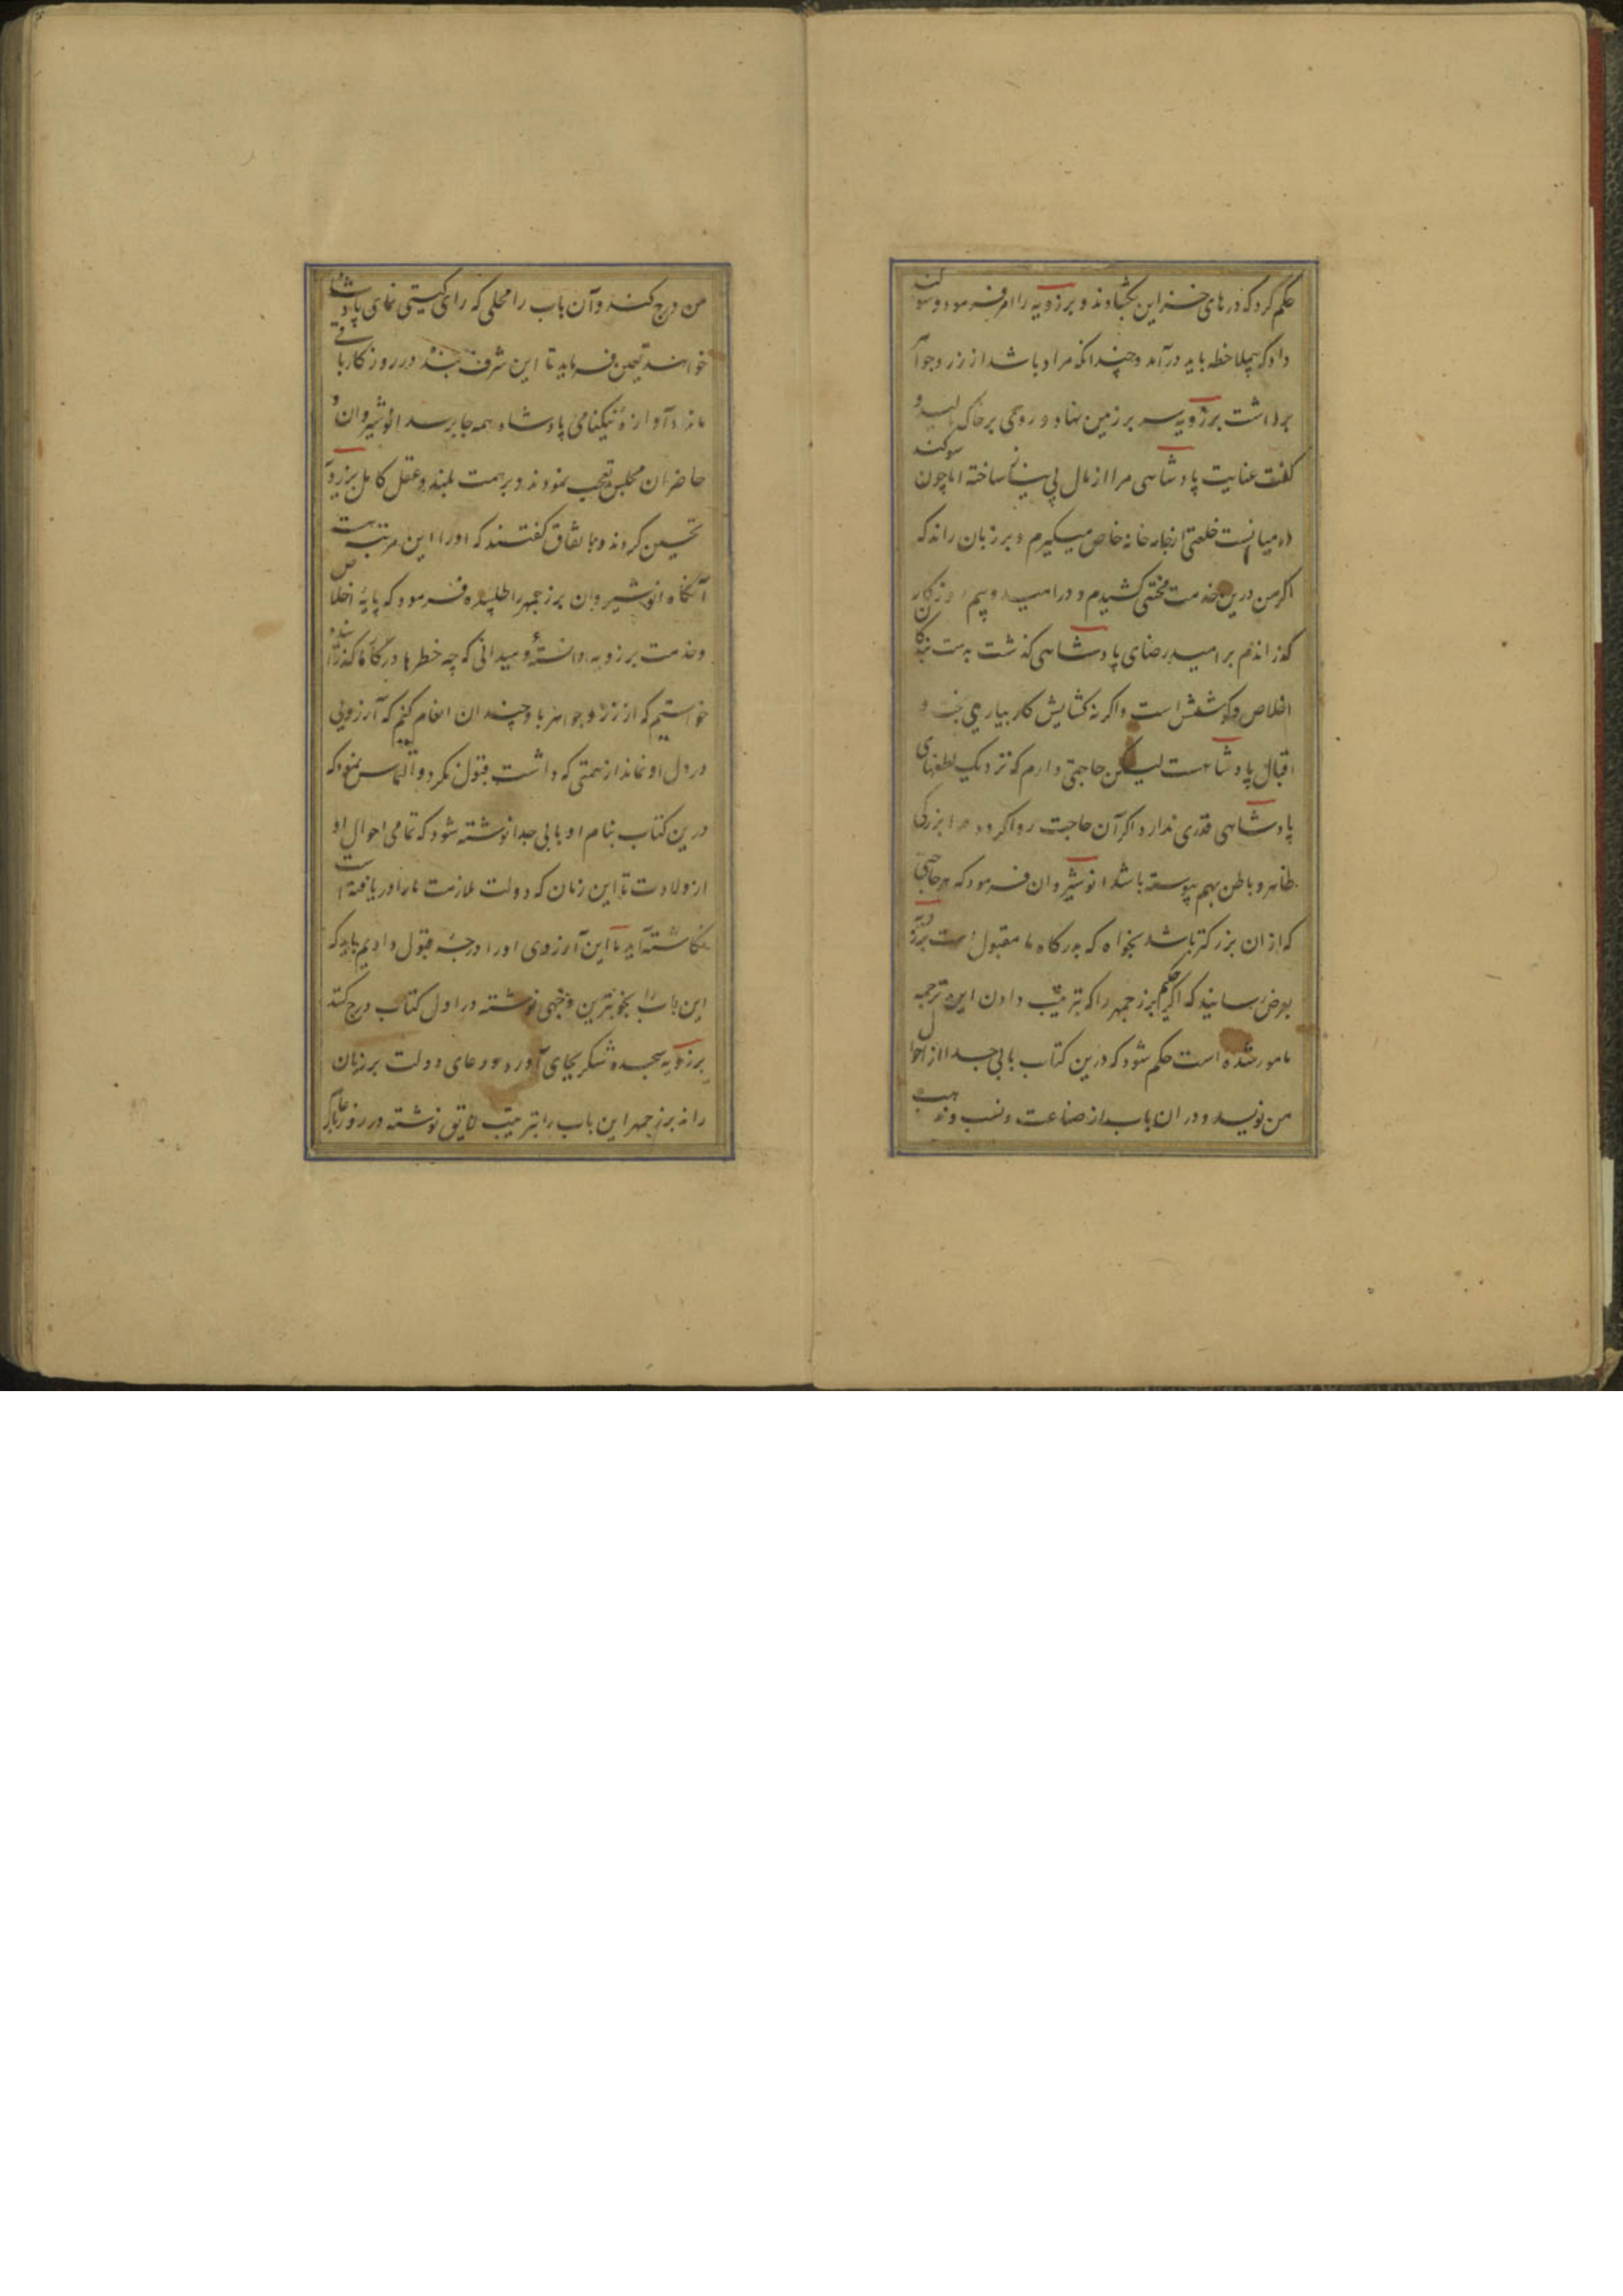 حکم کرد که در های خزاین بکشادند و برزویه را امر فرمود و سوکند
داد که بیملاحظه باید درآمد و چندانکه مراد باشد از زر و جواهر
برداشت برزویه سر بر زمین نهاد و روی بر خاک مالید و
کفت عنایت پادشاهی مرا از مال بی نیاز ساخته اما چون سوکند
در میانست خلعتی از جامه خانه خاص میکیرم و بر زبان راند که
اکر من درین خدمت محنتی کشیدم و در امید و بیم روزکار
کذراندم بر امید رضای پادشاهی کذشت بدست بندکان
اخلاص و کوشش است و اکر نه کشایش کار بیاری بخت و
اقبال پادشاهست لیکن حاجتی دارم که نزدیک لطفهای
پادشاهی قدری ندارد اکر آن حاجت روا کردد مرا بزرکی
ظاهر و باطن بهم پیوسته باشد انوشیروان فرمود که هر حاجتی
که از ان بزرکتر باشد بخواه که بدرکاه ما مقبول است برزویه
بعرض رسانید که اکر حکیم برزجمهر را که بترتیب دادن این ترجمه
مامور شده است حکم شود که درین کتاب بابی جدا از احوال
من نویسد و در ان باب از صناعت و نسب و مذهب
من درج کند و آن باب را محلی که رای کیتی نمای پادشاه
خواهد تعیین فرماید تا این شرف بنده در روزکار باقی
ماند و آوازه نیکنامی پادشاه همه جا برسد انوشیروان و
حاضران مجلس تعجب نمودند و بر همت بلند و عقل کامل برزویه
تحسین کردند و باتفاق کفتند که او را این مرتبه هست
آنکاه انوشیروان برزجمهر را طلبیده فرمود که پایه اخلاص
و خدمت برزویه دانسته و میدانی که چه خطرها در کار ما کذرانیده
خواستیم که از زر و جواهر باو چندان انعام کنیم که آرزویی
در دل او نماند از همتی که داشت قبول نکرد و التماس نمود که
درین کتاب بنام او بابی جدا نوشته شود که تمامی احوال او
از ولادت تا این زمان که دولت ملازمت ما را دریافته است
نکاشته آید ما این آرزوی او را درجه قبول دادیم باید که
این باب را بخوبترین وجهی نوشته در اول کتاب درج کند
برزویه سجده شکر بجای آورد و دعای دولت بر زبان
راند برزجمهر این باب را بترتیب لایق نوشته در روز بار عام